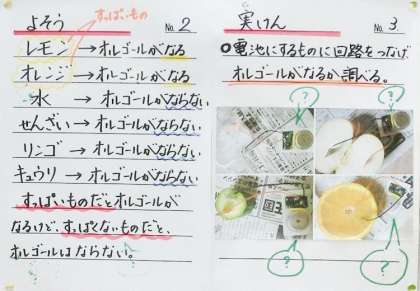 よそう No.2
すっぱいもの
レモン → オルゴールがなる
オレンジ → オルゴールがなる
水 → オルゴールがならない
せんざい → オルゴールがならない
リンゴ → オルゴールがならない
キュウリ → オルゴールがならない
すっぱいものだとオルゴールが
なるけど、すっぱくないものだと、
オルゴールはならない。
実けん No.3
○電池にするものに回路をつなげ
オルゴールがなるか調べる。
?
?
?
?